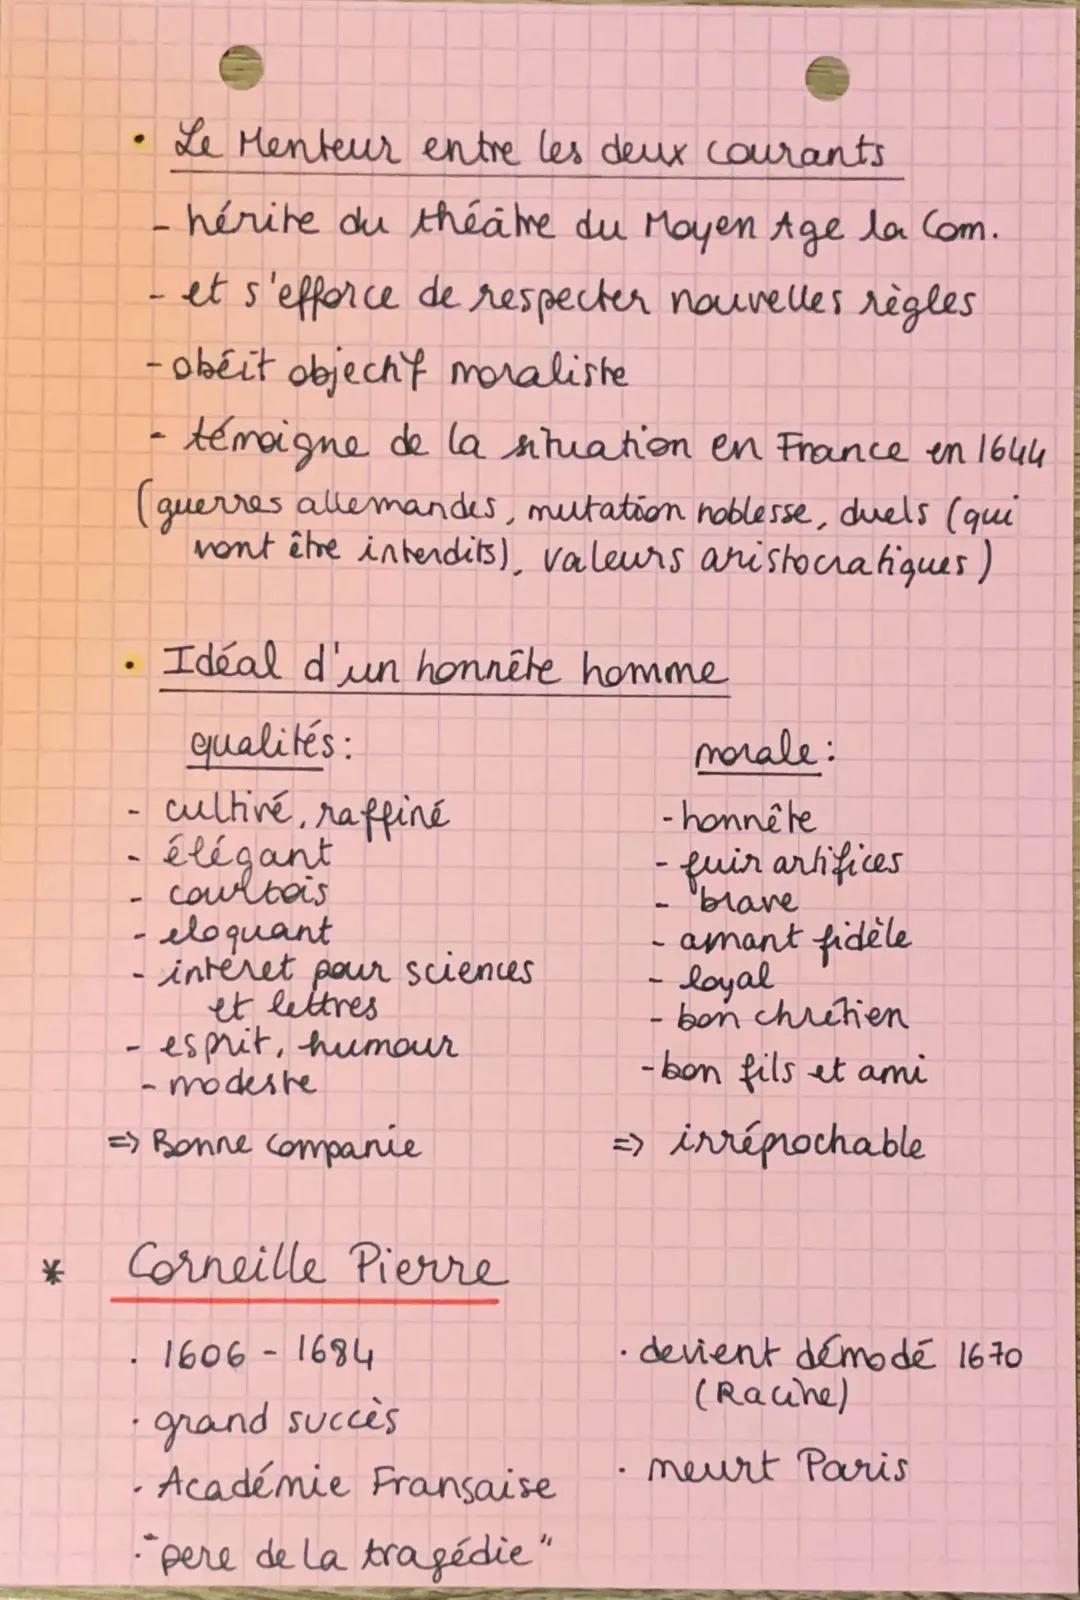 • Le Menteur entre les deux courants
- hérite du théâtre du Moyen Age la Com.
- et s'efforce de respecter nouvelles règles
- obéit objectif moraliste
- témoigne de la situation en France en 1644
(guerres allemandes, mutation noblesse, duels (qui
vont être interdits), valeurs aristocratiques)
• Idéal d'un honnête homme
qualités :
- cultivé, raffiné
- élégant
- courtois
- eloquant
- intéret pour sciences
et lettres
- esprit, humour
- modeste
=> Bonne companie
morale :
- honnête
- fuir artifices
- brave
- amant fidèle
- loyal
- bon chrétien
- bon fils et ami
=> irréprochable
* Corneille Pierre
. 1606 - 1684
. grand succès
. Académie Française
. "pere de la tragédie"
. devient démodé 1670
(Racine)
. meurt Paris